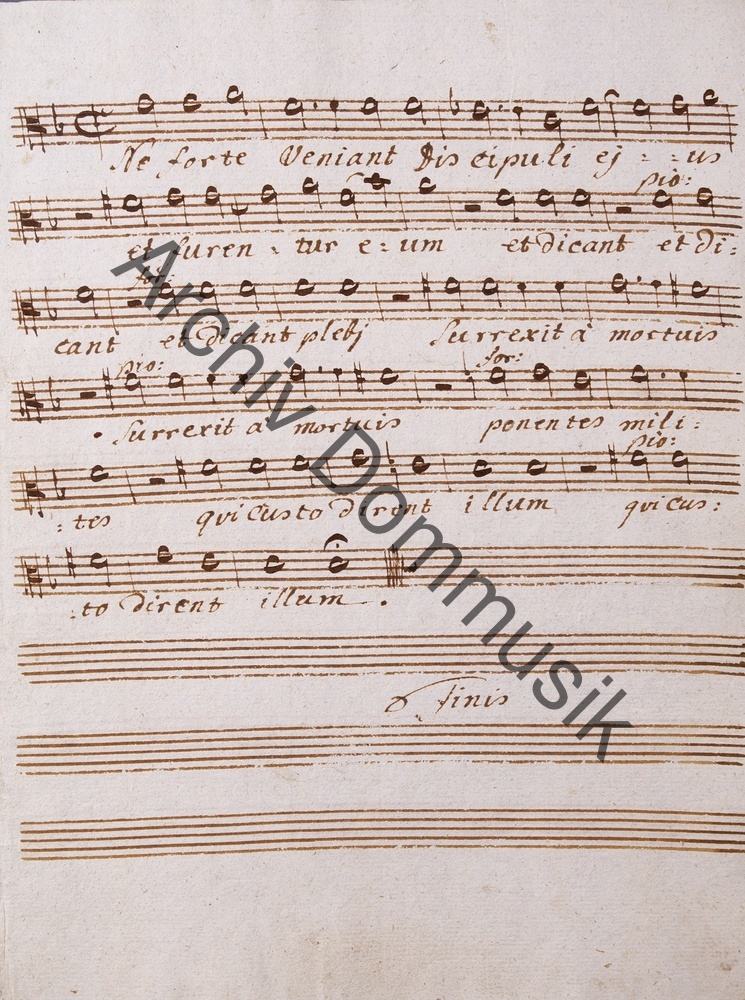 Ne forte Veniant Discipuli ej - - us
pio:
et furen - tur e - um et dicant et di:
for:
cant et dicant plebj Surrexit à mortuis
pio: for:
Surrexit à mortuis ponentes mili:
pio:
:tes qui Custo dirent illum qui cus:
:to dirent illum.
finis
Archiv Dommusik